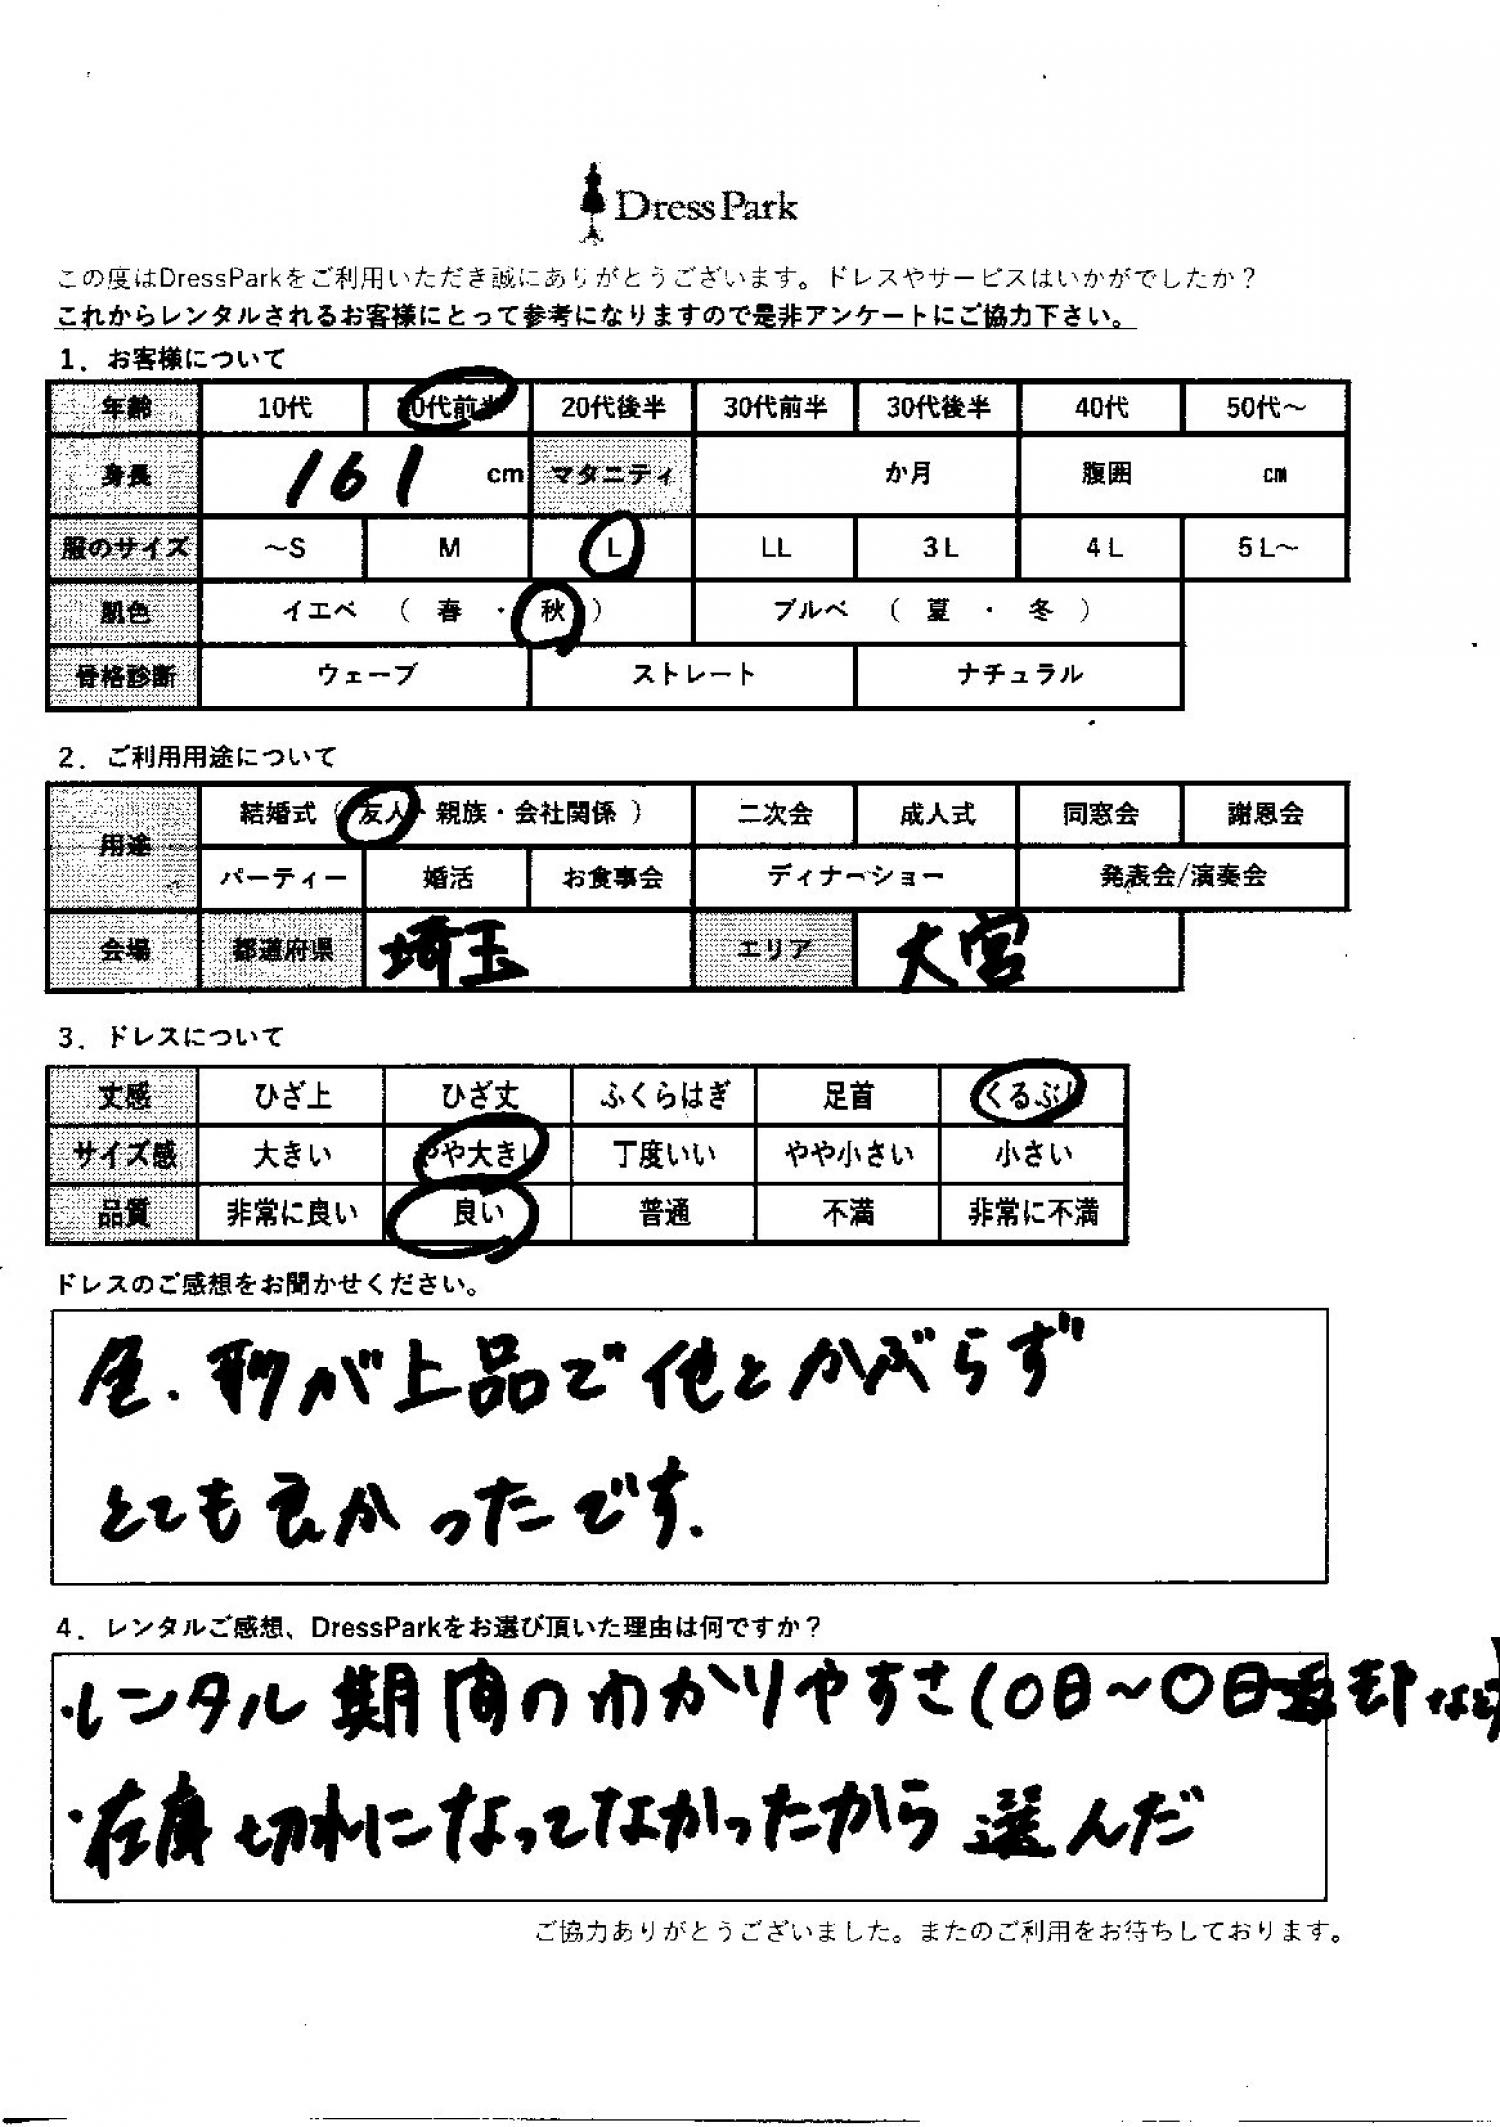 DressPark
この度はDressParkをご利用いただき誠にありがとうございます。ドレスやサービスはいかがでしたか？
これからレンタルされるお客様にとって参考になりますので是非アンケートにご協力下さい。
1．お客様について
年齢 10代 20代前半 20代後半 30代前半 30代後半 40代 50代～
身長 161 cm マタニティ か月 腹囲 cm
服のサイズ ～S M L LL 3L 4L 5L～
肌色 イエベ （ 春 ・ 秋 ） ブルベ （ 夏 ・ 冬 ）
骨格診断 ウェーブ ストレート ナチュラル
2．ご利用用途について
用途 結婚式（ 友人・親族・会社関係 ） 二次会 成人式 同窓会 謝恩会
パーティー 婚活 お食事会 ディナーショー 発表会/演奏会
会場 都道府県 埼玉 エリア 大宮
3．ドレスについて
丈感 ひざ上 ひざ丈 ふくらはぎ 足首 くるぶし
サイズ感 大きい やや大きい 丁度いい やや小さい 小さい
品質 非常に良い 良い 普通 不満 非常に不満
ドレスのご感想をお聞かせください。
色．形が上品で他とかぶらず
とても良かったです．
4．レンタルご感想、DressParkをお選び頂いた理由は何ですか？
・レンタル期間のわかりやすさ(〇日～〇日返却など)
・在庫切れになってなかったから選んだ
ご協力ありがとうございました。またのご利用をお待ちしております。